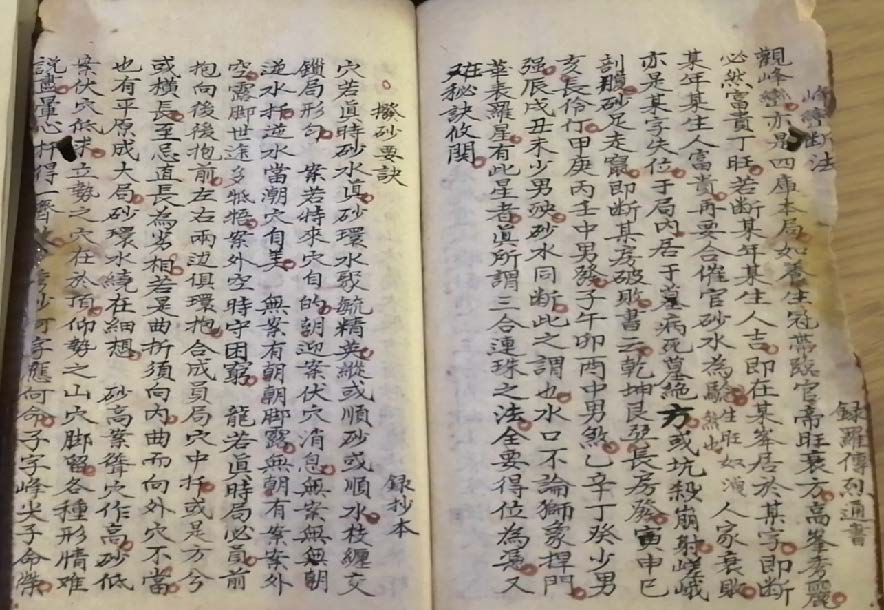 峰巒断法
錄羅傳烈通書
觀峰巒亦是四庫本局如養生冠帶臨官帝旺衰方高峯秀麗
必然富貴丁旺若斷某年某生人吉即在某峯居於某字即斷
某年某生人富貴再要合催官砂水為驗生旺如演人家衰敗
亦是某字失位于局内居于墓病死墓絶方或坑殺崩射嵯峨
剖腹砂足走竄即斷某房破敗書云乾坤艮巽長房廢寅申巳
亥長伶仃甲庚丙壬中男發子午卯酉中男煞乙辛丁癸少男
强辰戌丑未少男殃砂水同斷此之謂也水口不論獅象捍門
華表羅星有此星者眞所謂三合連珠之法全要得位為憑又
在秘訣攸関
撥砂要訣
錄抄本
穴若眞時砂水眞砂環水聚毓精英縱或順砂或順水枝纏交
鎖局形勾 案若特來穴自的朝迎案伏穴消息無案無朝
逆水扦逆水當潮穴自美 無案有朝朝脚露無朝有案案外
空露脚世途多牴牾案外空時守困窮 龍若眞時局必員前
抱向後後抱前左右兩边俱環抱合成員局穴中扦或是方兮
或横長至忌直長為劣相若是曲折須向内曲而向外穴不當
也有平原成大局砂環水繞在細想 砂高案聳穴作高砂低
案伏穴低求立勢之穴在於頂仰勢之山穴脚留各種形情难
説盡單心扦得一齊 砂何字應何命子字峰尖子命榮